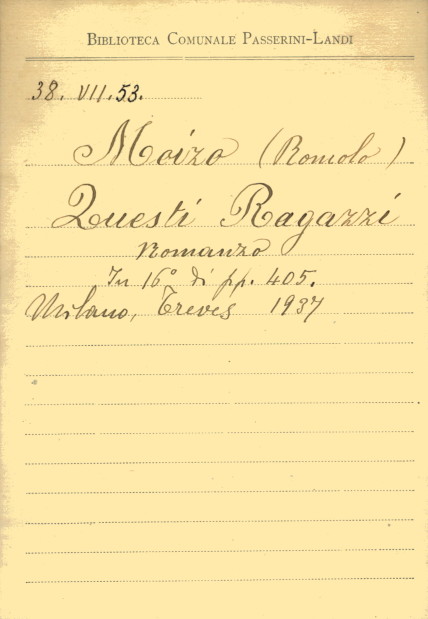 BIBLIOTECA COMUNALE PASSERINI-LANDI
38. VII. 53.
Moizo (Romolo)
Questi Ragazzi
Romanzo
In 16° di pp. 405.
Milano, Treves 1937